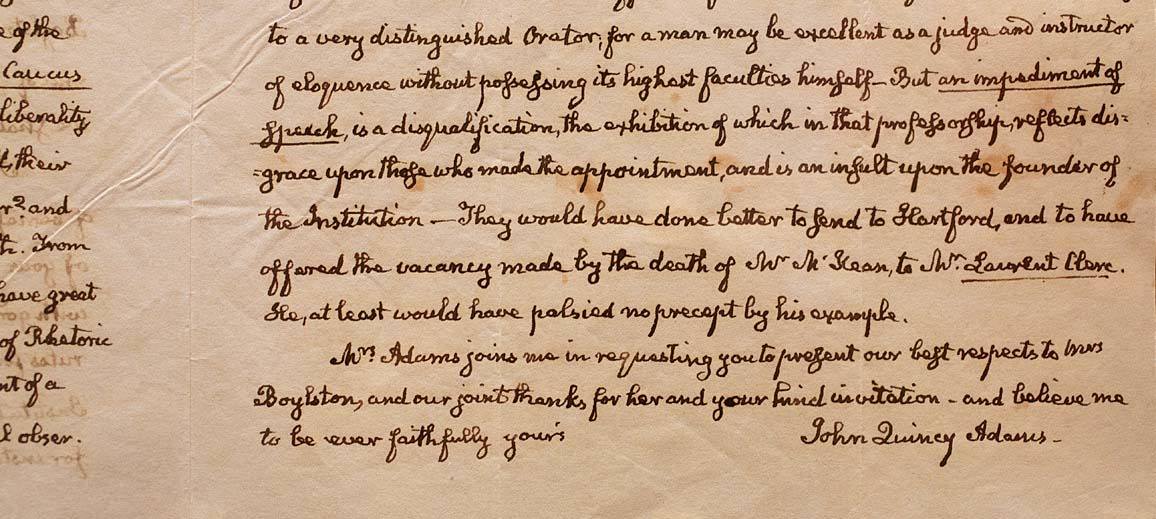 e of the
Caucus
liberality
their
and
From
have great
of Rhetoric
nt of a
obser.
to a very distinguished Orator; for a man may be excellent as a judge and instructor
of eloquence without poſseſsing its highest faculties himself— But an impediment of
Speech, is a disqualification, the exhibition of which in that profeſsorship, reflects dis=
=grace upon thoſe who made the appointment, and is an inſult upon the founder of
the Institution — They would have done better to ſend to Hartford, and to have
offered the vacancy made by the death of Mr McKean, to Mr. Laurent Clerc.
He, at least would have palsied no precept by his example.
Mrs Adams joins me in requesting you to preſent our beſt respects to Mrs
Boylston, and our joint thanks for her and your kind invitation - and believe me
to be ever faithfully your's
John Quincy Adams—